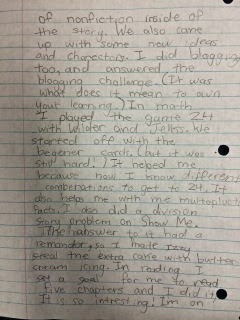 of nonfiction inside of
the story. We also came
up with some new ideas
and charectors. I did blogging
too, and answered the
blogging challenge. (It was
what does it mean to own
your learning.) In math
I played the game 24
with and . We
started off with the
begener cards, but it was
still hard. It helped me
because now I know different
combenations to get to 24. It
also helps me with me multipluction
facts. I also did a division
story problem on Show Me.
The hanswer to it had a
remandor, so I made
the extra cake with butter
cream icing. In reading I
set a goal for me to read
five chapters and I did it.
It is so intresting! I'm on